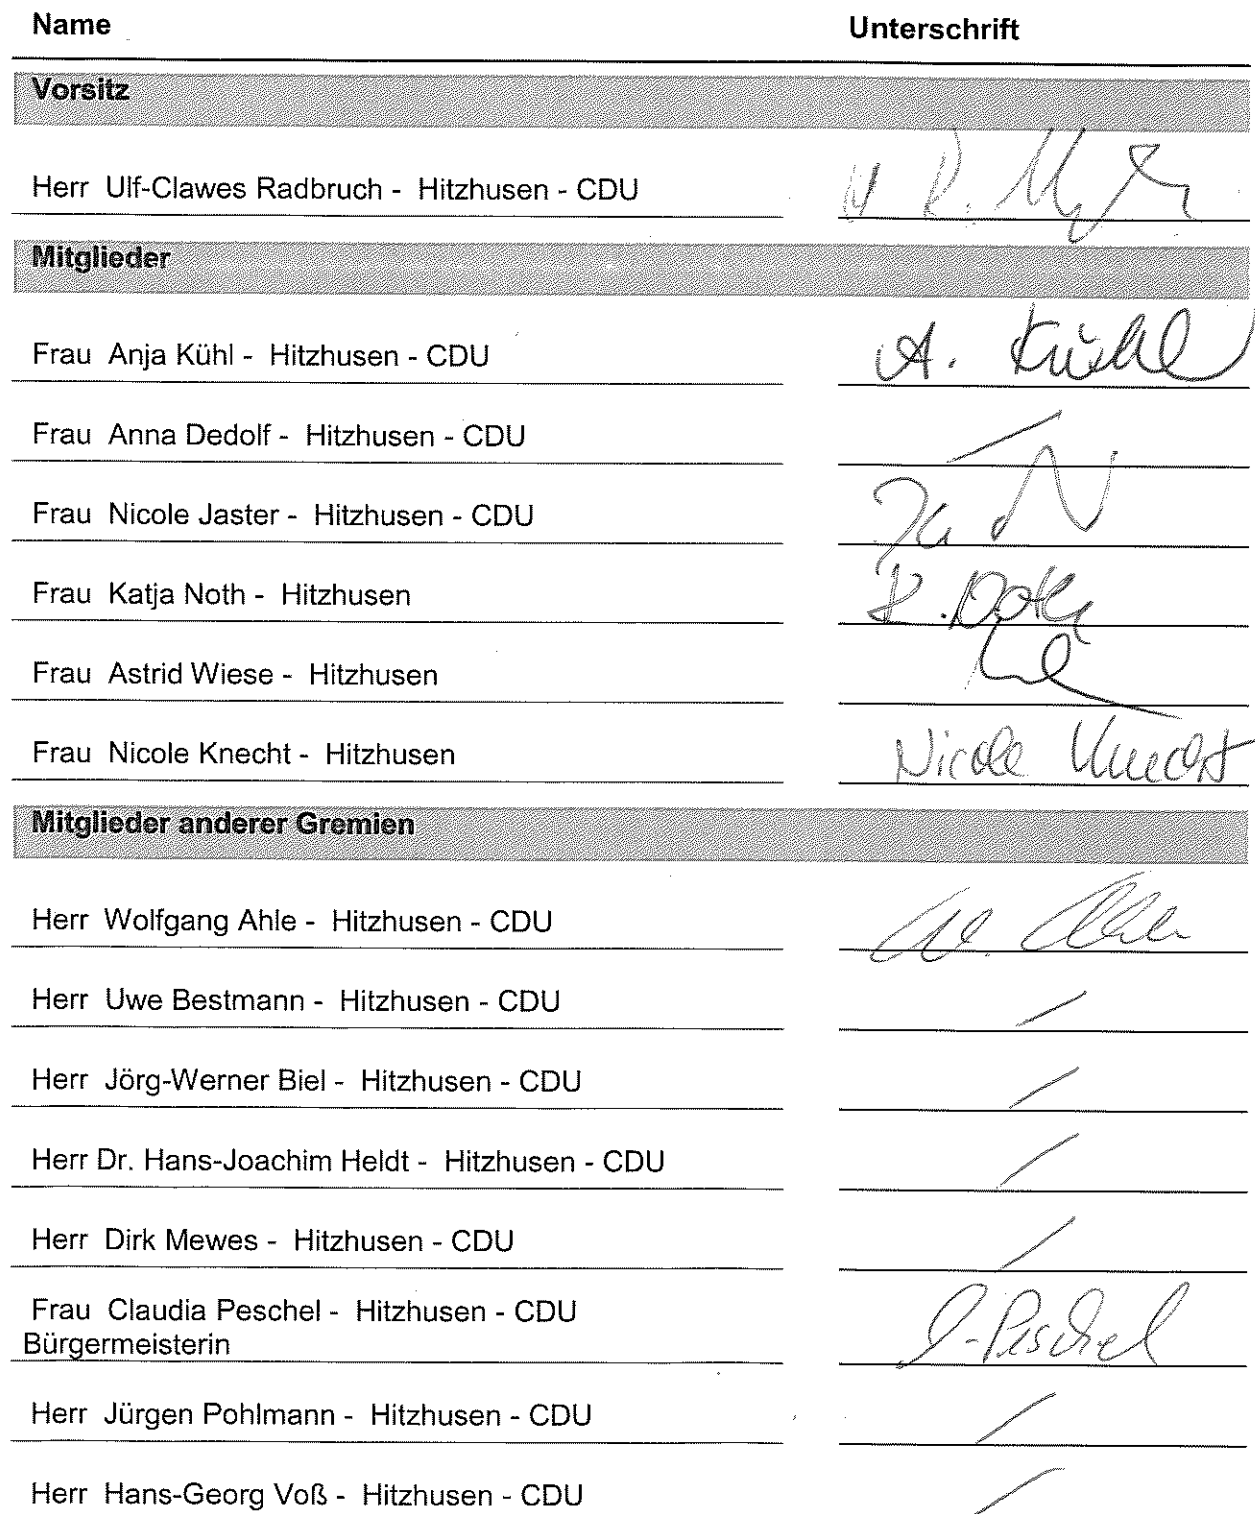 Name Unterschrift
Vorsitz
Herr Ulf-Clawes Radbruch - Hitzhusen - CDU
Mitglieder
Frau Anja Kühl - Hitzhusen - CDU A. Kühl
Frau Anna Dedolf - Hitzhusen - CDU
Frau Nicole Jaster - Hitzhusen - CDU
Frau Katja Noth - Hitzhusen K. Noth
Frau Astrid Wiese - Hitzhusen
Frau Nicole Knecht - Hitzhusen Nicole Knecht
Mitglieder anderer Gremien
Herr Wolfgang Ahle - Hitzhusen - CDU W. Ahle
Herr Uwe Bestmann - Hitzhusen - CDU
Herr Jörg-Werner Biel - Hitzhusen - CDU
Herr Dr. Hans-Joachim Heldt - Hitzhusen - CDU
Herr Dirk Mewes - Hitzhusen - CDU
Frau Claudia Peschel - Hitzhusen - CDU C. Peschel
Bürgermeisterin
Herr Jürgen Pohlmann - Hitzhusen - CDU
Herr Hans-Georg Voß - Hitzhusen - CDU